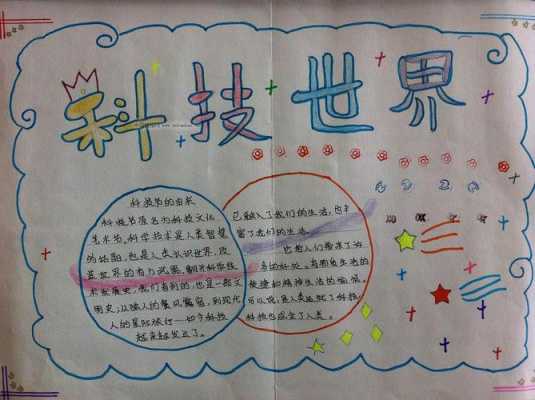 科技世界
科技节的由来
科技节原名为科技文化
艺术节,科学技术是人类智慧
的结晶,也是人类认识世界,改
造世界的有力武器,翻开科学技
术发展史,我们看到的,也是一部文
明史,从猿人的餐风露宿,到现代
人的星际旅行——如今科技
越来越发达了。
已融入了我们的生活,也丰
富了我们的生活
也给人们带来了许
多的好处。
便捷和精神生活的愉悦。
可以说,是人类造就了科技,
科技也成全了人类。